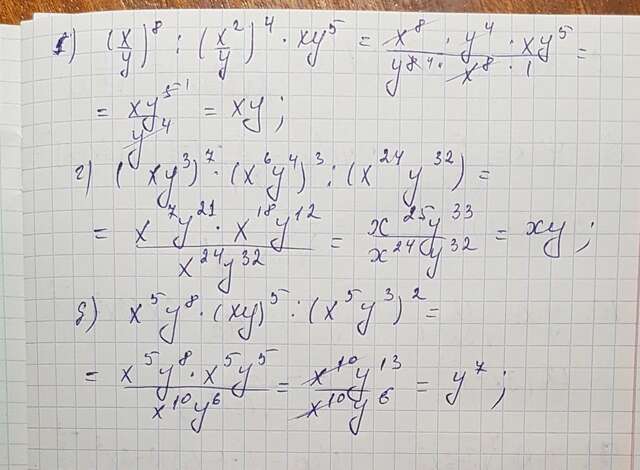 б) (x/y)⁸ : (x²/y)⁴ · xy⁵ = x⁸ · y⁴ · xy⁵ / y⁸ · x⁸ · 1 =
= xy⁵ / y⁴ = xy ;
г) (xy³)⁷ · (x⁶y⁴)³ : (x²⁴y³²) =
= x⁷y²¹ · x¹⁸y¹² / x²⁴y³² = x²⁵y³³ / x²⁴y³² = xy ;
g) x⁵y⁸ · (xy)⁵ : (x⁵y³)² =
= x⁵y⁸ · x⁵y⁵ / x¹⁰y⁶ = x¹⁰y¹³ / x¹⁰y⁶ = y⁷ ;